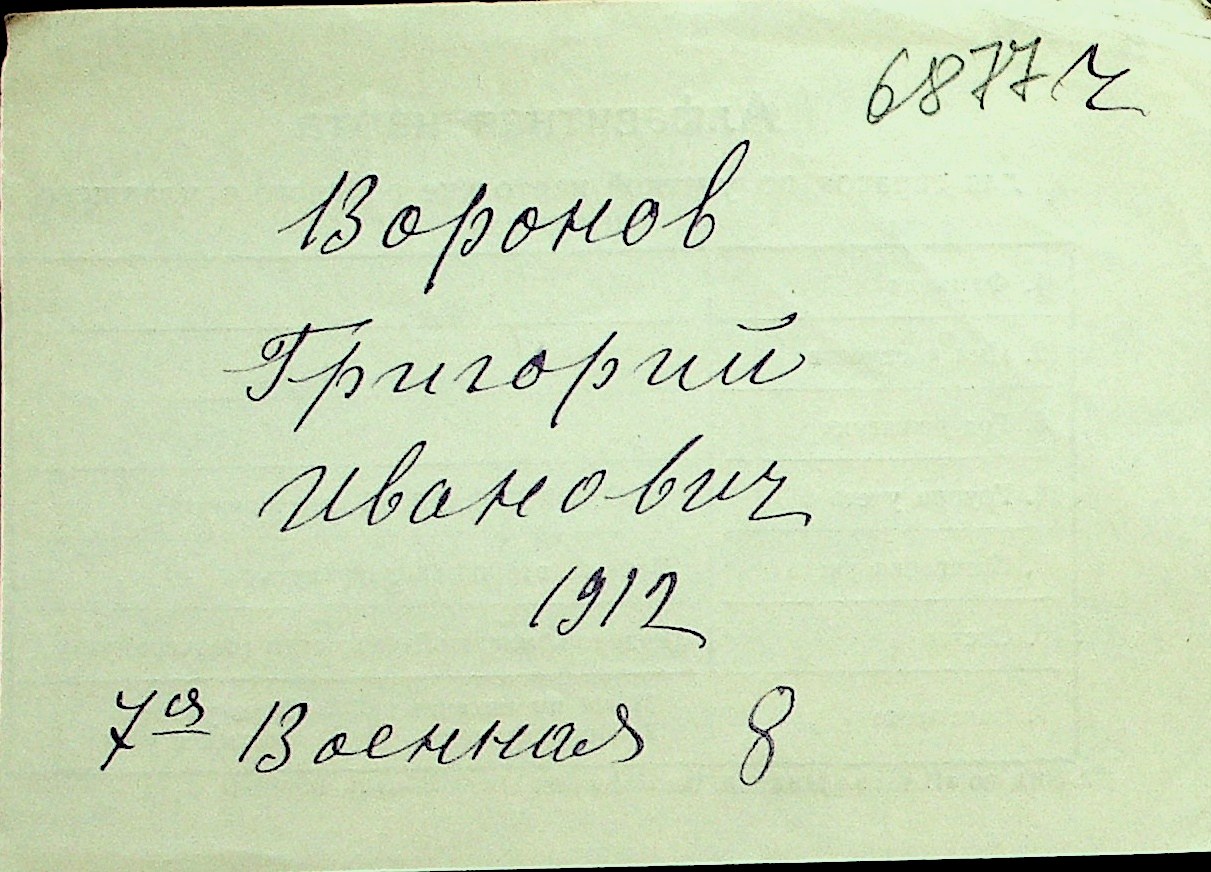 6877 ч
Воронов
Григорий
Иванович
1912
7ая Военная 8